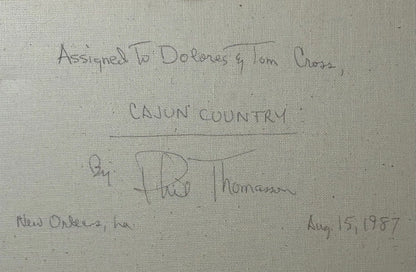 Assigned To Dolores & Tom Cross,
CAJUN COUNTRY
By: Phil Thomasson
New Orleans, La Aug. 15, 1987